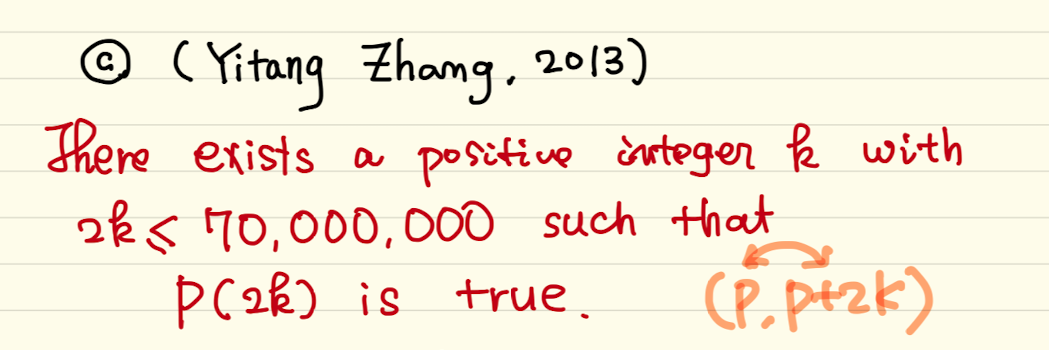 ⓒ (Yitang Zhang, 2013)
There exists a positive integer k with
2k ≤ 70,000,000 such that
P(2k) is true. (p, p+2k)